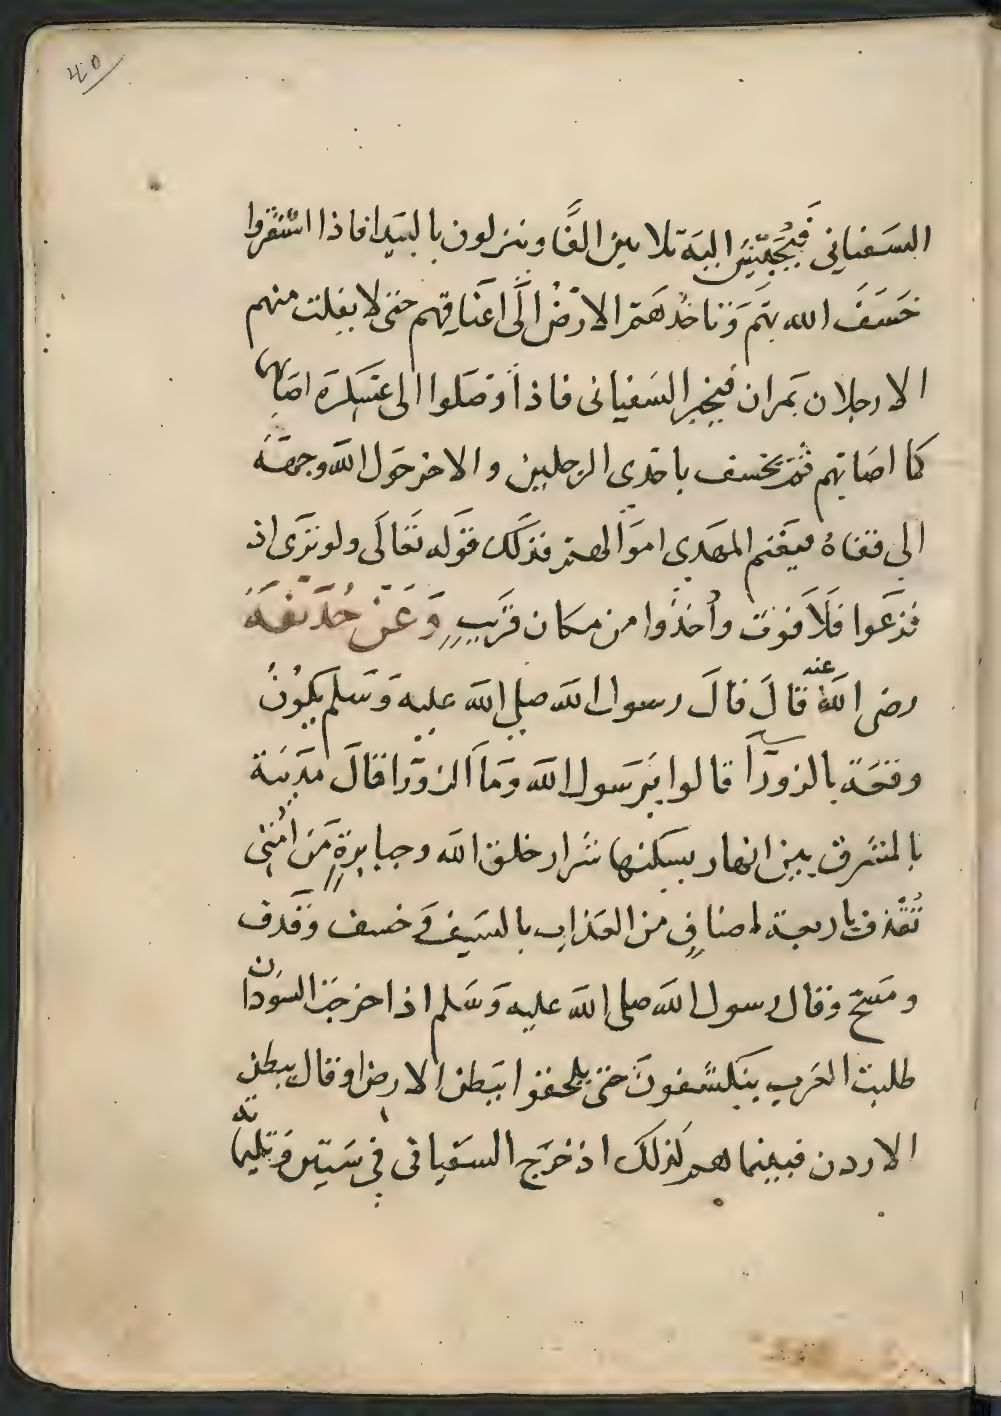 ٤٥
السفياني فَيُجَيِّشُ اليه ثلاثين الفًا وينزلون بالبيدا فاذا استقروا
خَسَفَ الله بهم وتاخذهم الارضُ الى اعناقهم حتى لا يفلت منهم
الا رجلان يمران فيخبر السفيانى فاذا وصلوا الى عسكره اصابهم
كما اصابهم ثم يخسف باحدى الرجلين والاخر حول الله وجهه
الى قفاهُ فيغنم المهدى اموالهم فذلك قوله تعالى ولو ترى اذ
فزعوا فلا فوت وأُخذوا من مكان قريب وعن حُذيفة
رضى الله عنه قال قال رسول الله صلى الله عليه وسلم يكونُ
وقعة بالزورآ قالوا يرسول الله وما الزورا قال مدينة
بالمشرق بين انهار يسكنها شرار خلق الله وجبابرةٍ من امتى
تُقذف باربعة اصنافٍ من العذاب بالسيف وخسف وقذف
ومسخ وقال رسول الله صلى الله عليه وسلم اذا خرجت السودان
طلبت العرب ينكشفون حتى يلحقوا ببطن الارض او قال ببطن
الاردن فبينما هم كذلك اذ خرج السفيانى فى ستين وثلثمائة